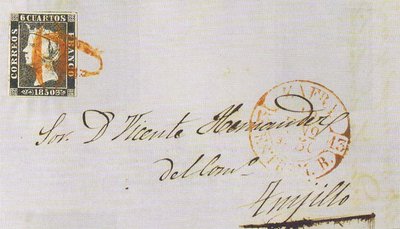 6 CUARTOS
CORREOS
FRANCO
1850
ZAFRA
Sor. D Vicente Hernandez
del Comº
Trujillo